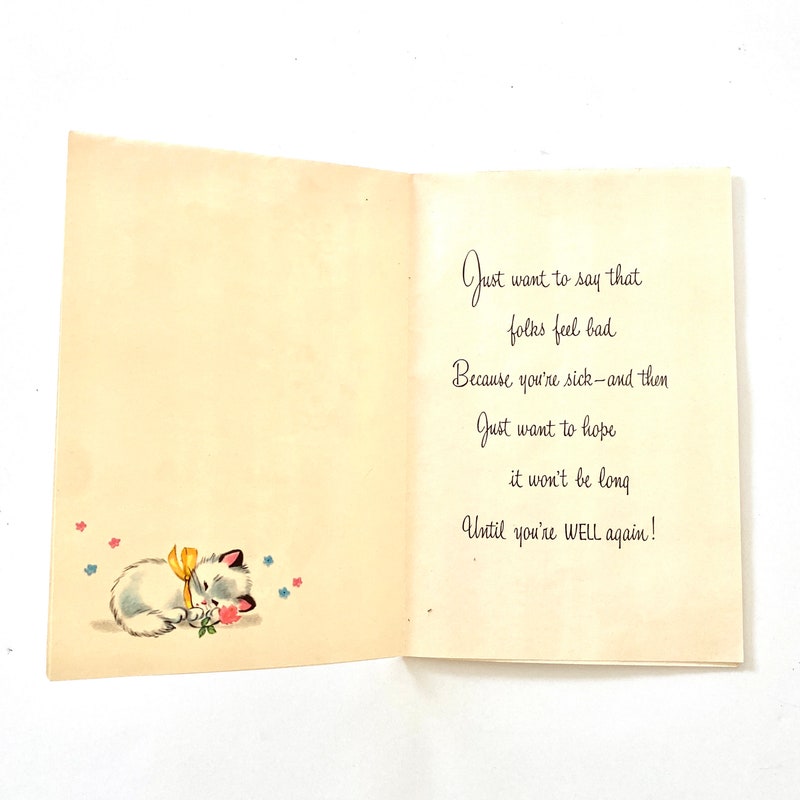 Just want to say that
folks feel bad
Because you're sick—and then
Just want to hope
it won't be long
Until you're WELL again!